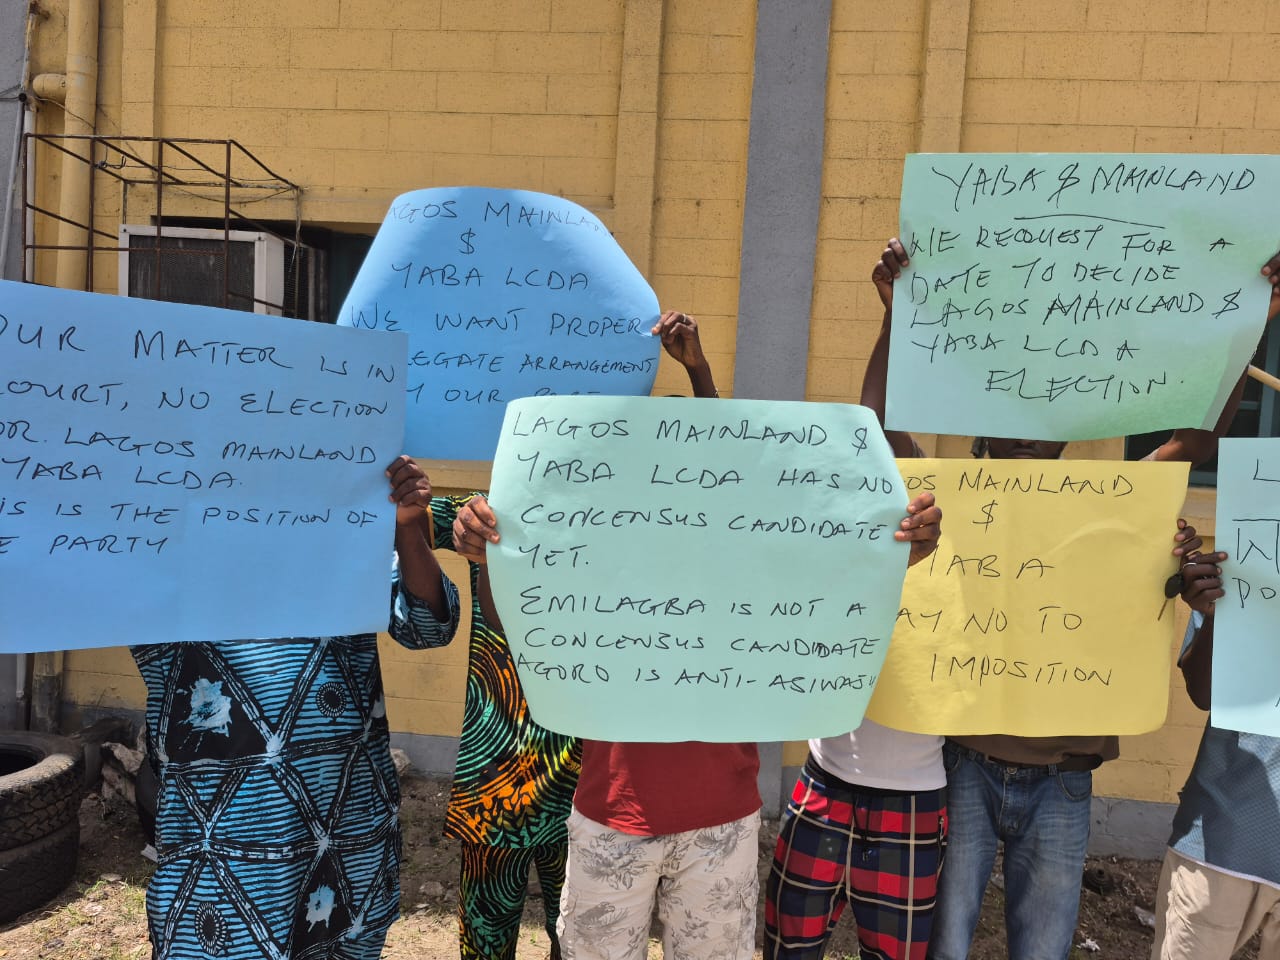 OUR MATTER IS IN
COURT, NO ELECTION
FOR. LAGOS MAINLAND
YABA LCDA.
THIS IS THE POSITION OF
THE PARTY
LAGOS MAINLAND
$
YABA LCDA
WE WANT PROPER
DELEGATE ARRANGEMENT
OUR
LAGOS MAINLAND $
YABA LCDA HAS NO
CONCENSUS CANDIDATE
YET.
EMILAGBA IS NOT A
CONCENSUS CANDIDATE
AGORO IS ANTI-ASIWAJU
YABA $ MAINLAND
WE REQUEST FOR A
DATE TO DECIDE
LAGOS MAINLAND $
YABA LCDA
ELECTION.
LAGOS MAINLAND
$
YABA
SAY NO TO
IMPOSITION
L
PO